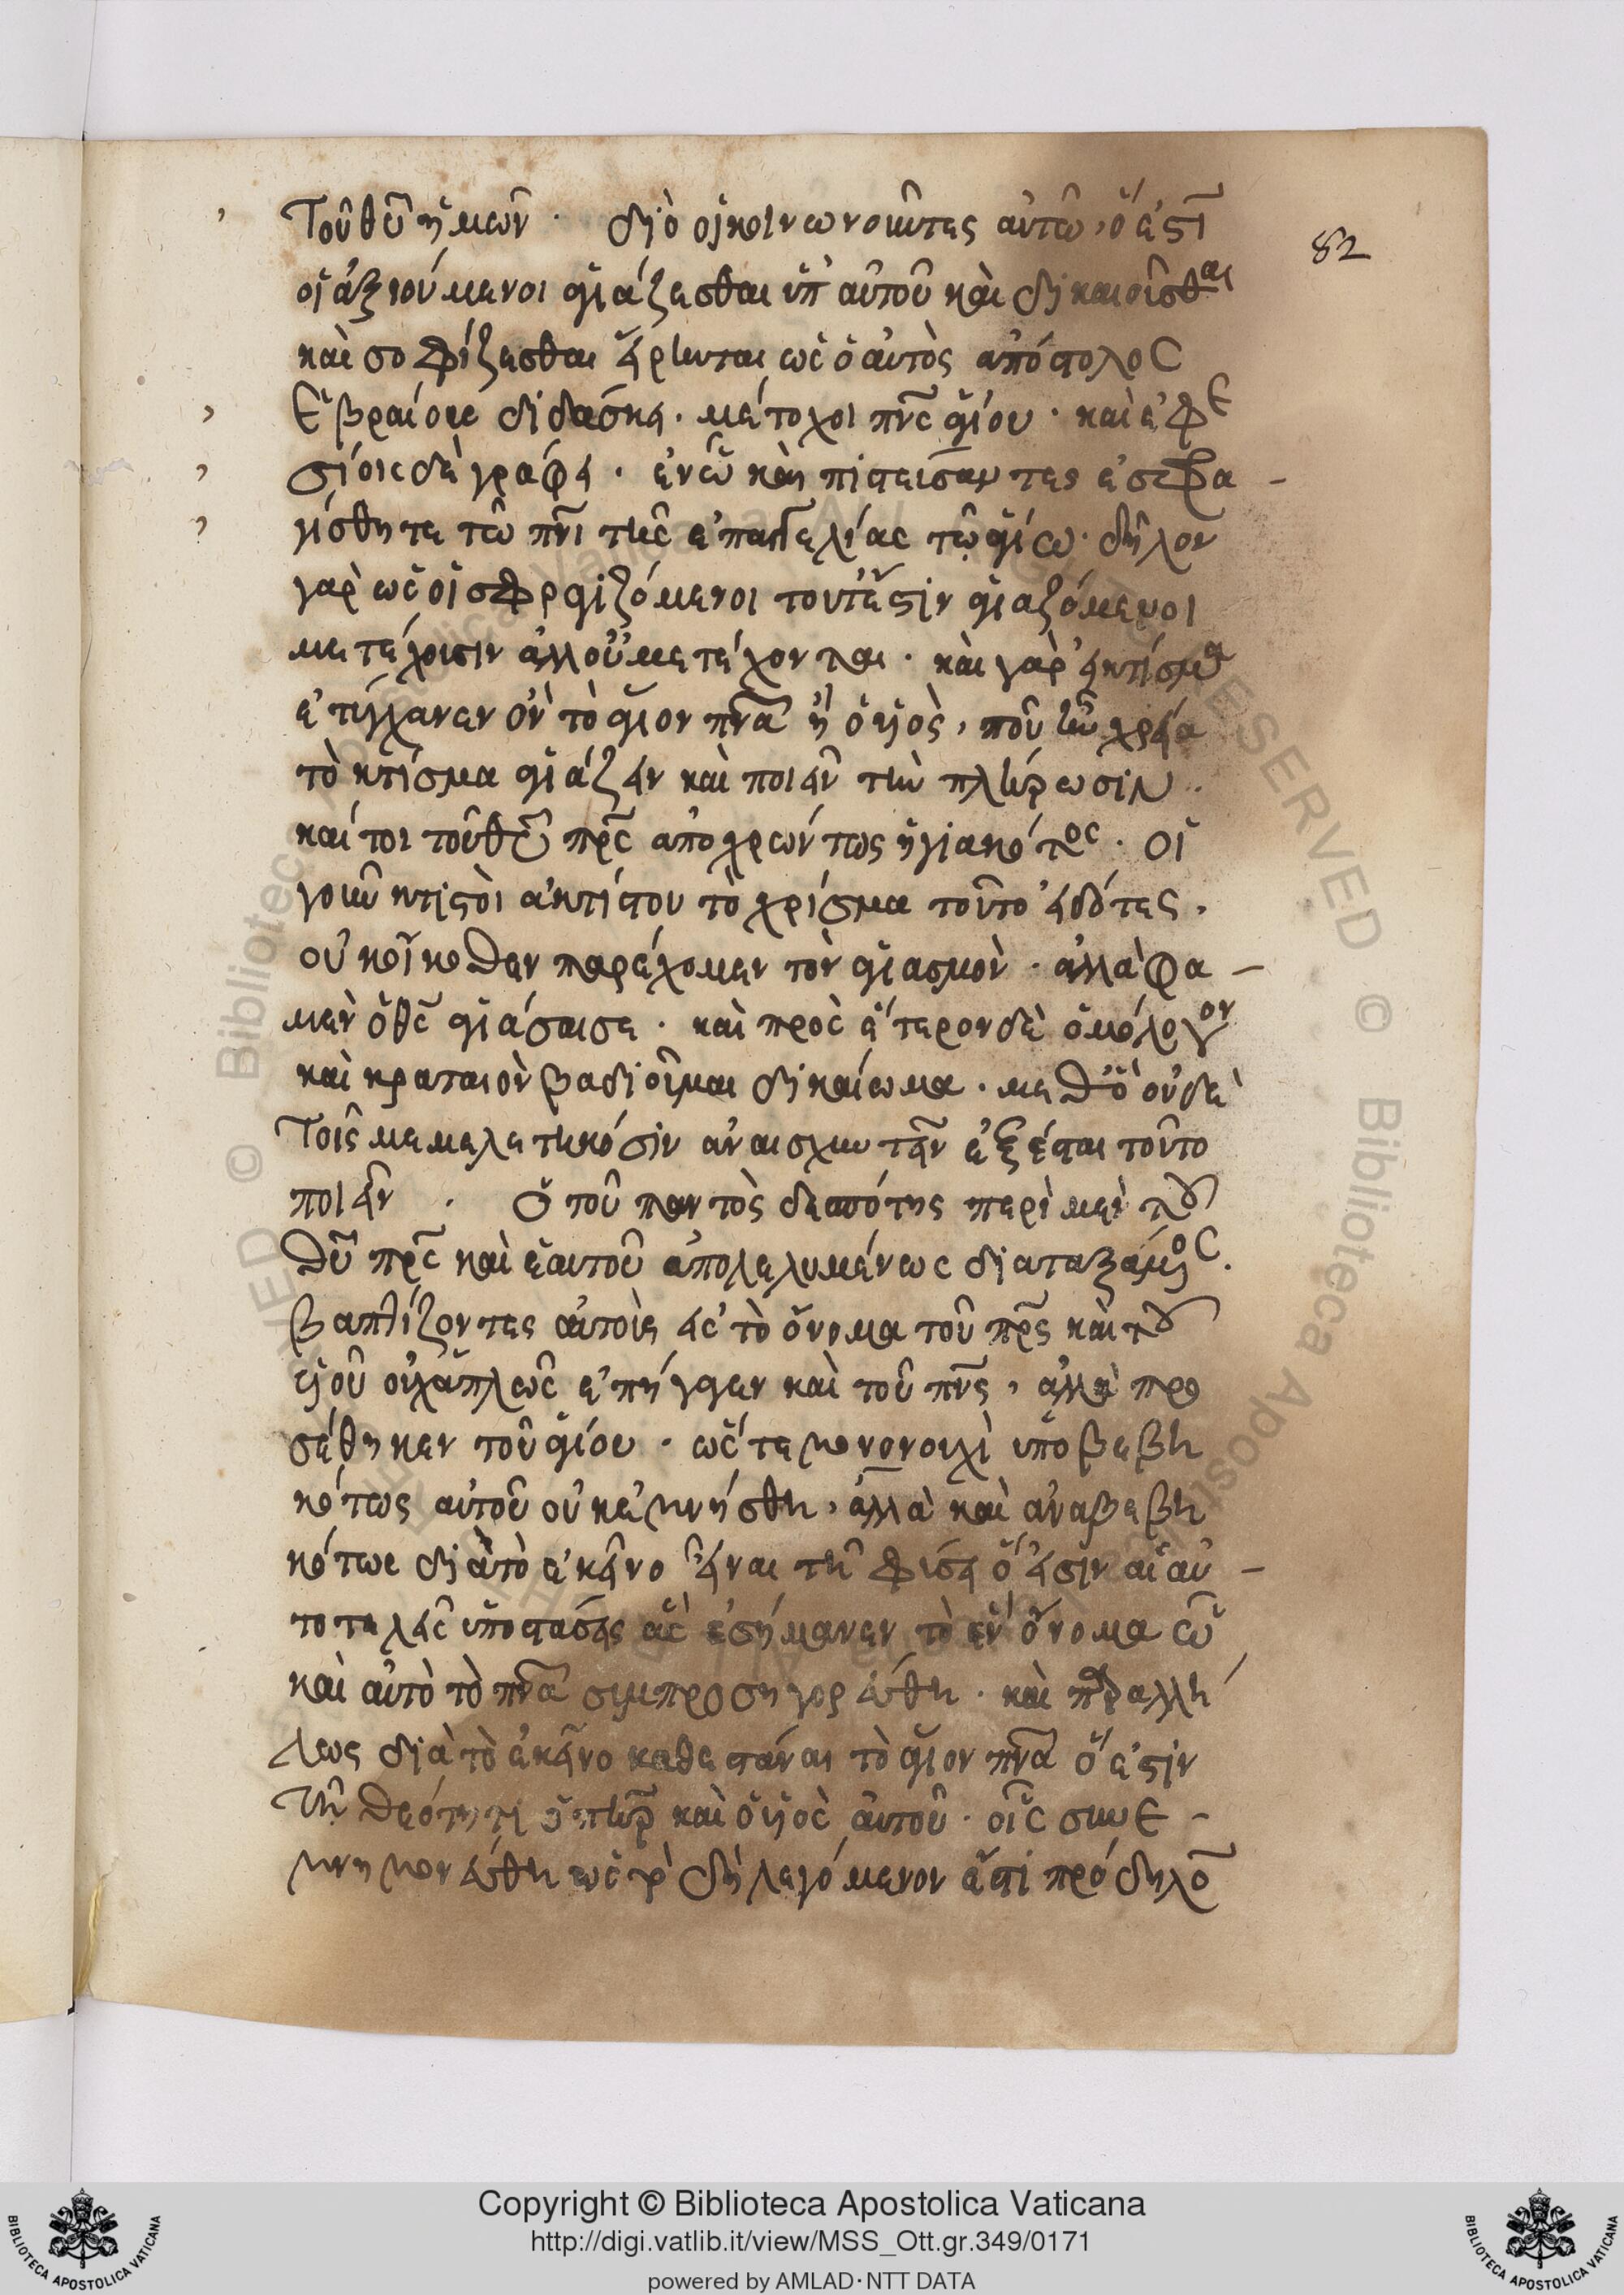 τοῦ θυ ἡμῶν · διὸ οἱ κοινωνοῦντες αὐτῶ, ὅ ἐστι
82
οἱ ἀξιούμενοι ἁγιάζεσθαι ὑπ' αὐτοῦ καὶ δικαιοῦσθαι
καὶ σοφίζεσθαι εἴρηνται ὡς ὁ αὐτὸς ἀπόστολος
Ἑβραίους διδάσκει · μέτοχοι πνς ἁγίου · καὶ ἐφε
σίοις δὲ γράφει · ἐν ᾧ καὶ πιστεύσαντες ἐσφρα -
γίσθητε τῶ πνι τῆς ἐπαγγελίας τῶ ἁγίω · δῆλον
γὰρ ὡς οἱ σφραγιζόμενοι τουτέστιν ἁγιαζόμενοι
μετέχουσιν ἀλλ' οὐ μετέχονται · καὶ γὰρ εἰ κτίσμα
ἐτύγχανεν ὂν τὸ ἅγιον πνα ἢ ὁ υἱὸς, ποῦ ἦν χρεία
τὸ κτίσμα ἁγιάζειν καὶ ποιεῖν τὴν πλήρωσιν ··
καίτοι τοῦ θυ πρς ἀποχρώντως ἡγιακότος · οἱ
γοῦν κτιστοὶ ἀκτίστου τὸ χρίσμα τοῦτο εἰδότες,
οὐκ οἴκοθεν παρέχομεν τὸν ἁγιασμὸν · ἀλλὰ φα -
μὲν ὁ θς ἁγιάσαι σε · καὶ πρὸς ἕτερον δὲ ὁμόλογον
καὶ κραταιὸν βαδιοῦμαι δικαίωμα · μεθ' ὃ οὐδὲ
τοῖς μεμελετηκόσιν ἀναισχυντεῖν ἐξέσται τοῦτο
ποιεῖν · Ὁ τοῦ παντὸς δεσπότης περὶ μὲν τοῦ
θυ πρς καὶ ἑαυτοῦ ἀπολελυμένως διαταξάμενος.
βαπτίζοντες αὐτοὺς εἰς τὸ ὄνομα τοῦ πρς καὶ τοῦ
υἱοῦ οὐχ ἁπλῶς ἐπήγαγεν καὶ τοῦ πνς, ἀλλὰ προ
σέθηκεν τοῦ ἁγίου · ὥστε μόνον οὐχὶ ὑποβεβη
κότως αὐτοῦ οὐκ ἐμνήσθη, ἀλλὰ καὶ ἀναβεβη
κότως διὰ τὸ ἐκεῖνο εἶναι τῆ φύσει ὅ εἰσιν αἱ αὐ -
τοτελεῖς ὑποστάσεις ἃς ἐσήμανεν τὸ ἓν ὄνομα ᾧ
καὶ αὐτὸ τὸ πνα συμπροσηγορεύθη · καὶ παραλλή
λως διὰ τὸ ἐκεῖνο καθεστάναι τὸ ἅγιον πνα ὅ ἐστιν
τῆ θεότητι ὁ πηρ καὶ ὁ υἱὸς αὐτοῦ · οἷς συνε -
μνημονεύθη ὡς τὸ δὴ λεγόμενον ἔστι πρόδηλον
Copyright © Biblioteca Apostolica Vaticana
http://digi.vatlib.it/view/MSS_Ott.gr.349/0171
powered by AMLAD·NTT DATA